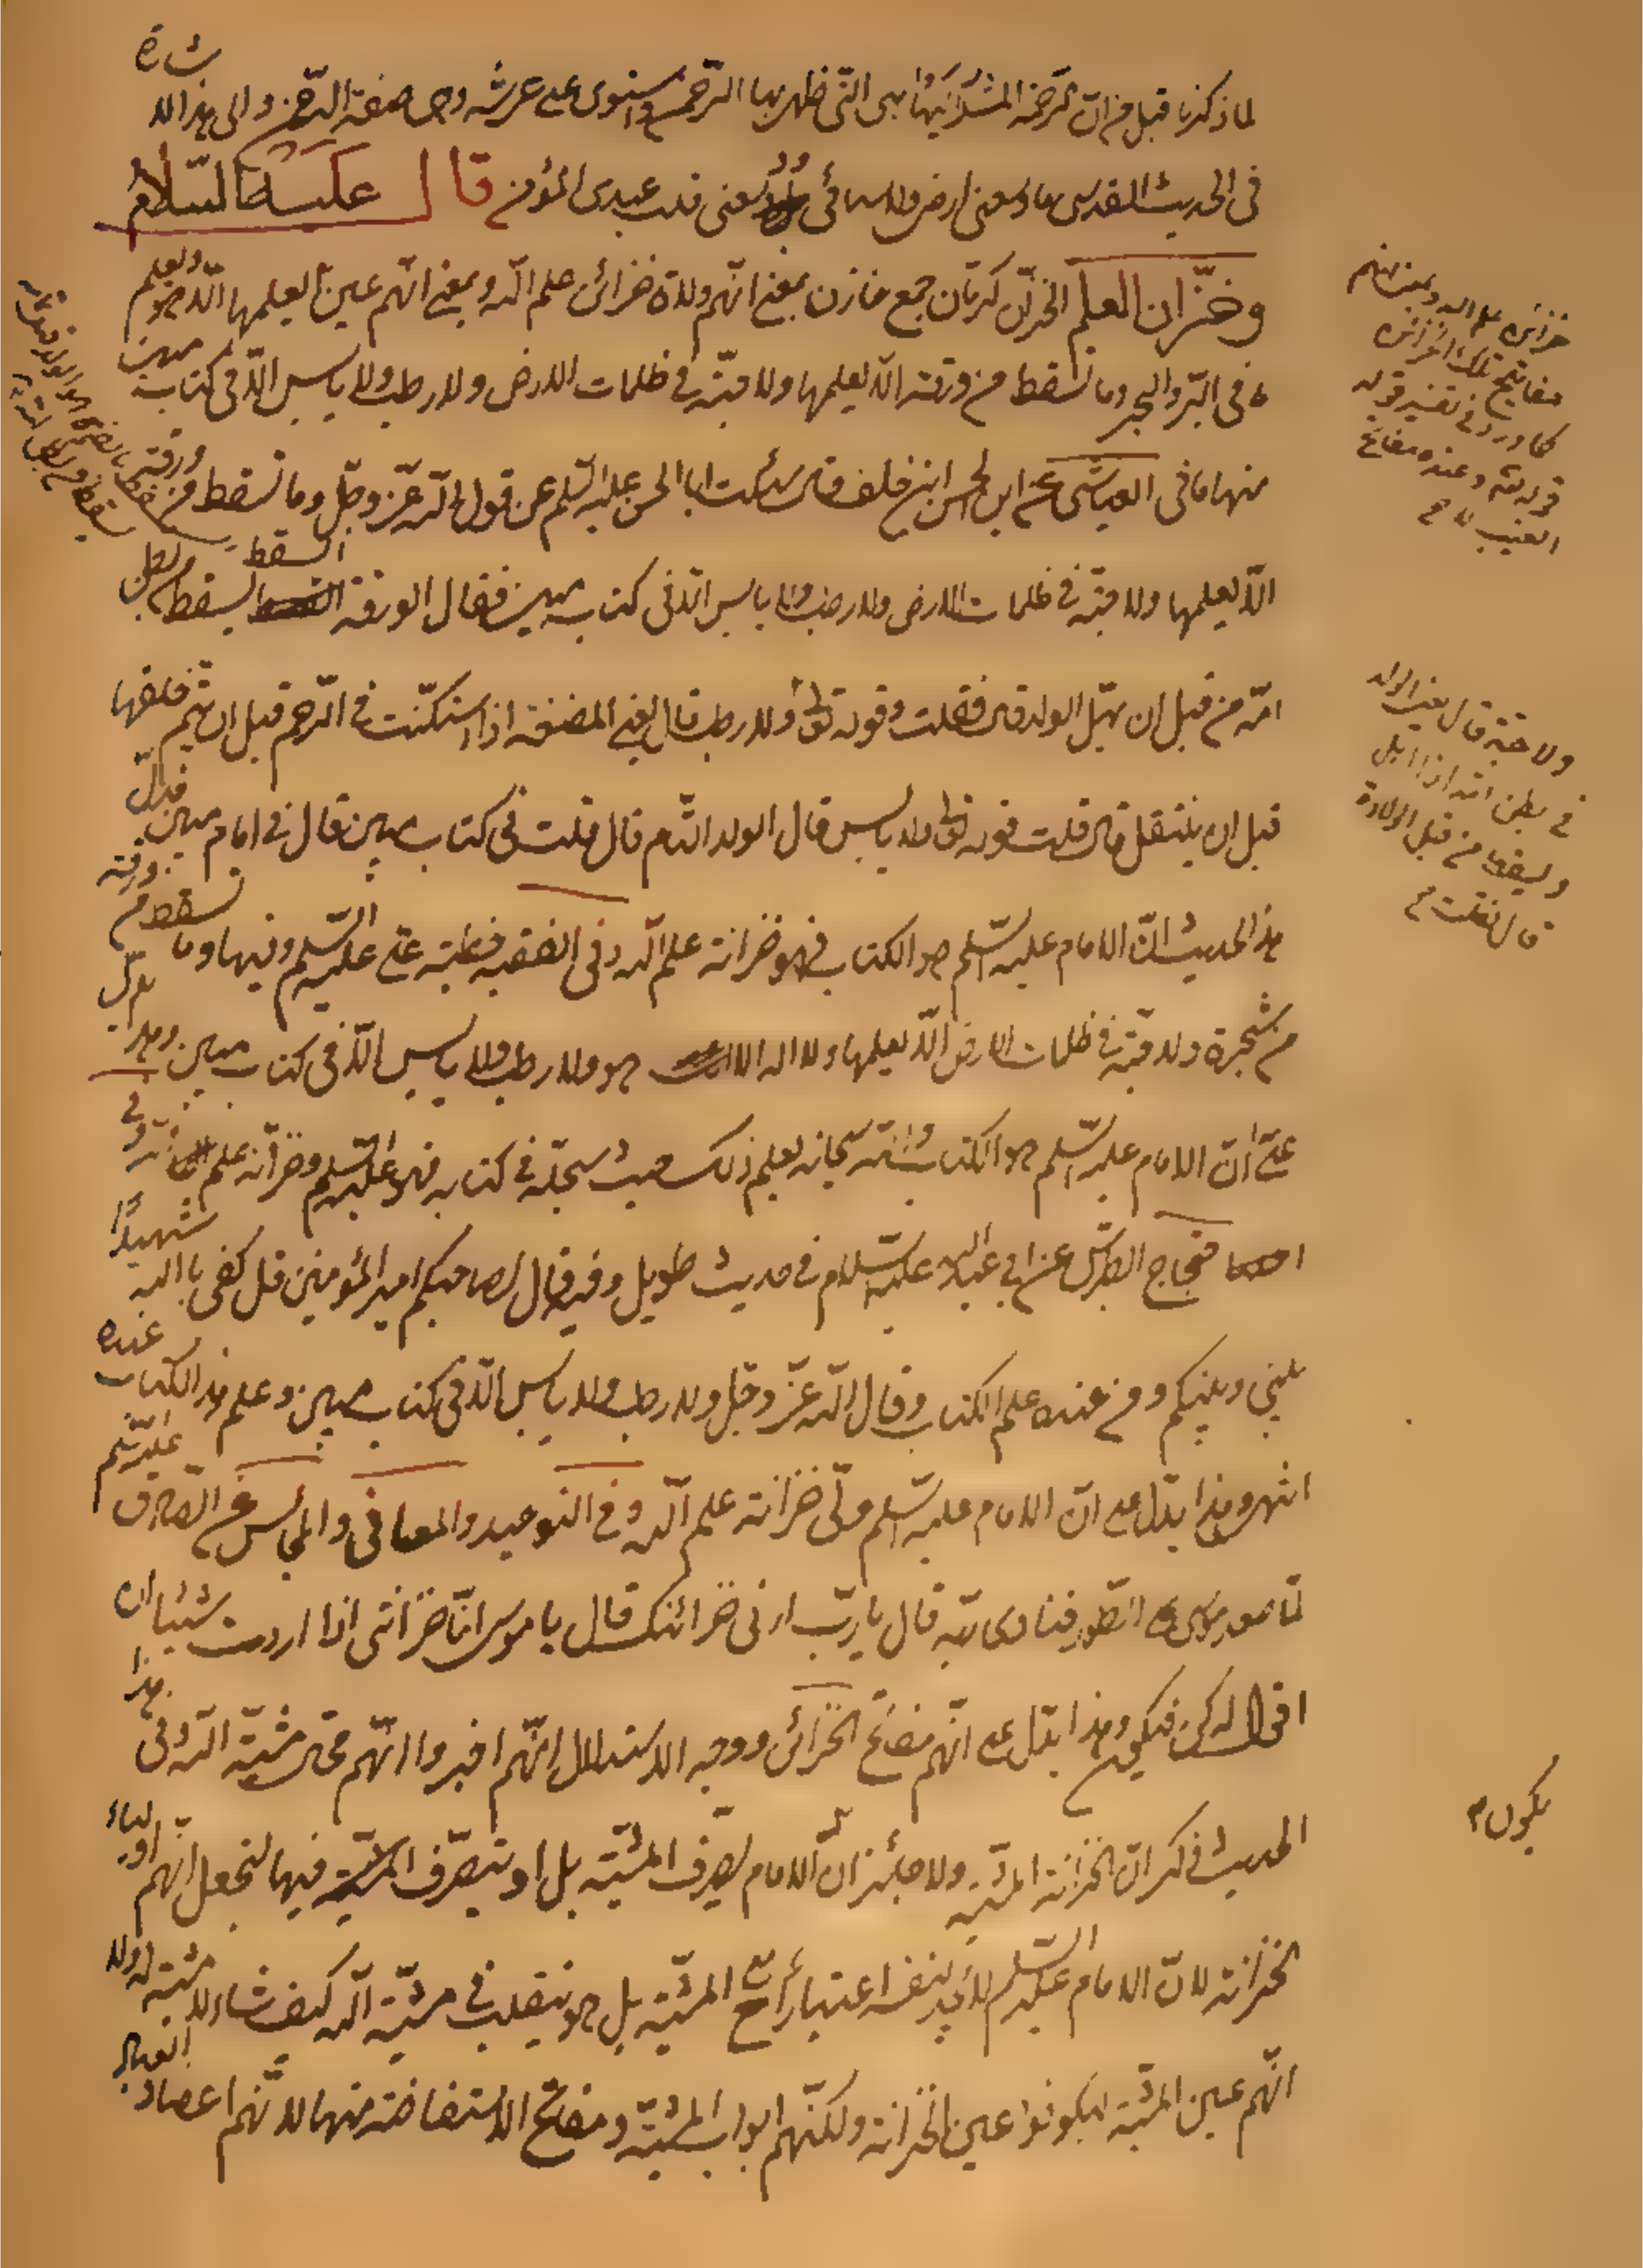 لما ذكرنا قبل من ان الرحمة المشار اليها هي التي ظهر بها الرحمن واستوى على عرشه وهي صفة الرحمن والى هذا الاشارة
في الحديث القدسي ما وسعني ارضي ولا سمائي ووسعني قلب عبدي المؤمن قال عليه السلام
وخزّان العلم الخزّان كرمّان جمع خازن بمعنى انهم ولاة خزائن علم الله وبمعنى انهم عين لا يعلمها الا هو ويعلم
ما في البر والبحر وما تسقط من ورقة الا يعلمها ولا حبة في ظلمات الارض ولا رطب ولا يابس الا في كتاب مبين
منها ما في العياشي عن ابن خلف قال سئلت ابا الحسن عليه السلم عن قول الله عز وجل وما تسقط من ورقة
الا يعلمها ولا حبة في ظلمات الارض ولا رطب ولا يابس الا في كتاب مبين فقال الورقة السقط يسقط من بطن
امه من قبل ان يهل الولد قال فقلت وقوله تع ولا رطب قال يعني المضغة اذا استكنت في الرحم قبل ان يتم خلقها
قبل ان ينتقل قال قلت قوله تع ولا يابس قال الولد التام قال قلت في كتاب مبين قال في امام مبين فدل
هذا الحديث ان الامام عليه السلم هو الكتاب فهو خزانة علم الله وفي الفقيه خطبة علي عليه السلم وفيها وما تسقط من ورقة
من شجرة ولا حبة في ظلمات الارض الا يعلمها ولا اله الا هو ولا رطب ولا يابس الا في كتاب مبين وهذا يدل
على ان الامام عليه السلم هو الكتاب وانه سبحانه يعلم ذلك حيث سجله في كتابه فهو عليه السلم خزانة علم الله وفي
احتجاج الطبرسي عن ابي عبد الله عليه السلام في حديث طويل وفيه قال لصاحبكم امير المؤمنين قل كفى بالله شهيدًا
بيني وبينكم ومن عنده علم الكتاب وقال الله عز وجل ولا رطب ولا يابس الا في كتاب مبين وعلم هذا الكتاب عنده
انتهى وهذا يدل على ان الامام عليه السلم ولي خزانة علم الله وفي التوحيد والمعاني والمجالس عن الصادق عليه السلم
لما صعد موسى الى الطور فنادى ربه قال يا رب ارني خزائنك قال يا موسى انما خزائني اذا اردت شيئا ان
اقول له كن فيكون وهذا يدل على انهم مفاتح الخزائن ووجه الاستدلال انهم اخبروا انهم محال مشية الله وفي هذا
الحديث ذكر ان الخزانة المشية ولا جائز ان الامام يصرف المشية بل او تتصرف المشية فيها لنجعل انهم اولياء
الخزانة لان الامام عليه السلم لا يجد لنفسه اعتبارًا مع المشية بل هو يتقلب في مشية الله كيف شاء لا مشية له ولا
انهم عين المشية ليكونوا عين الخزانة ولكنهم ابواب المشية ومفاتح الاستفاضة منها لانهم اعضاد
خزائن علم الله وبمعنى انهم
مفاتيح تلك الخزائن
كما ورد في تفسير قوله
قوله تع وعنده مفاتح
الغيب لا
ولا حبة قال يعني الولد
في بطن امه اذا اهل
ويسقط من قبل الولادة
قال فقلت
يكون